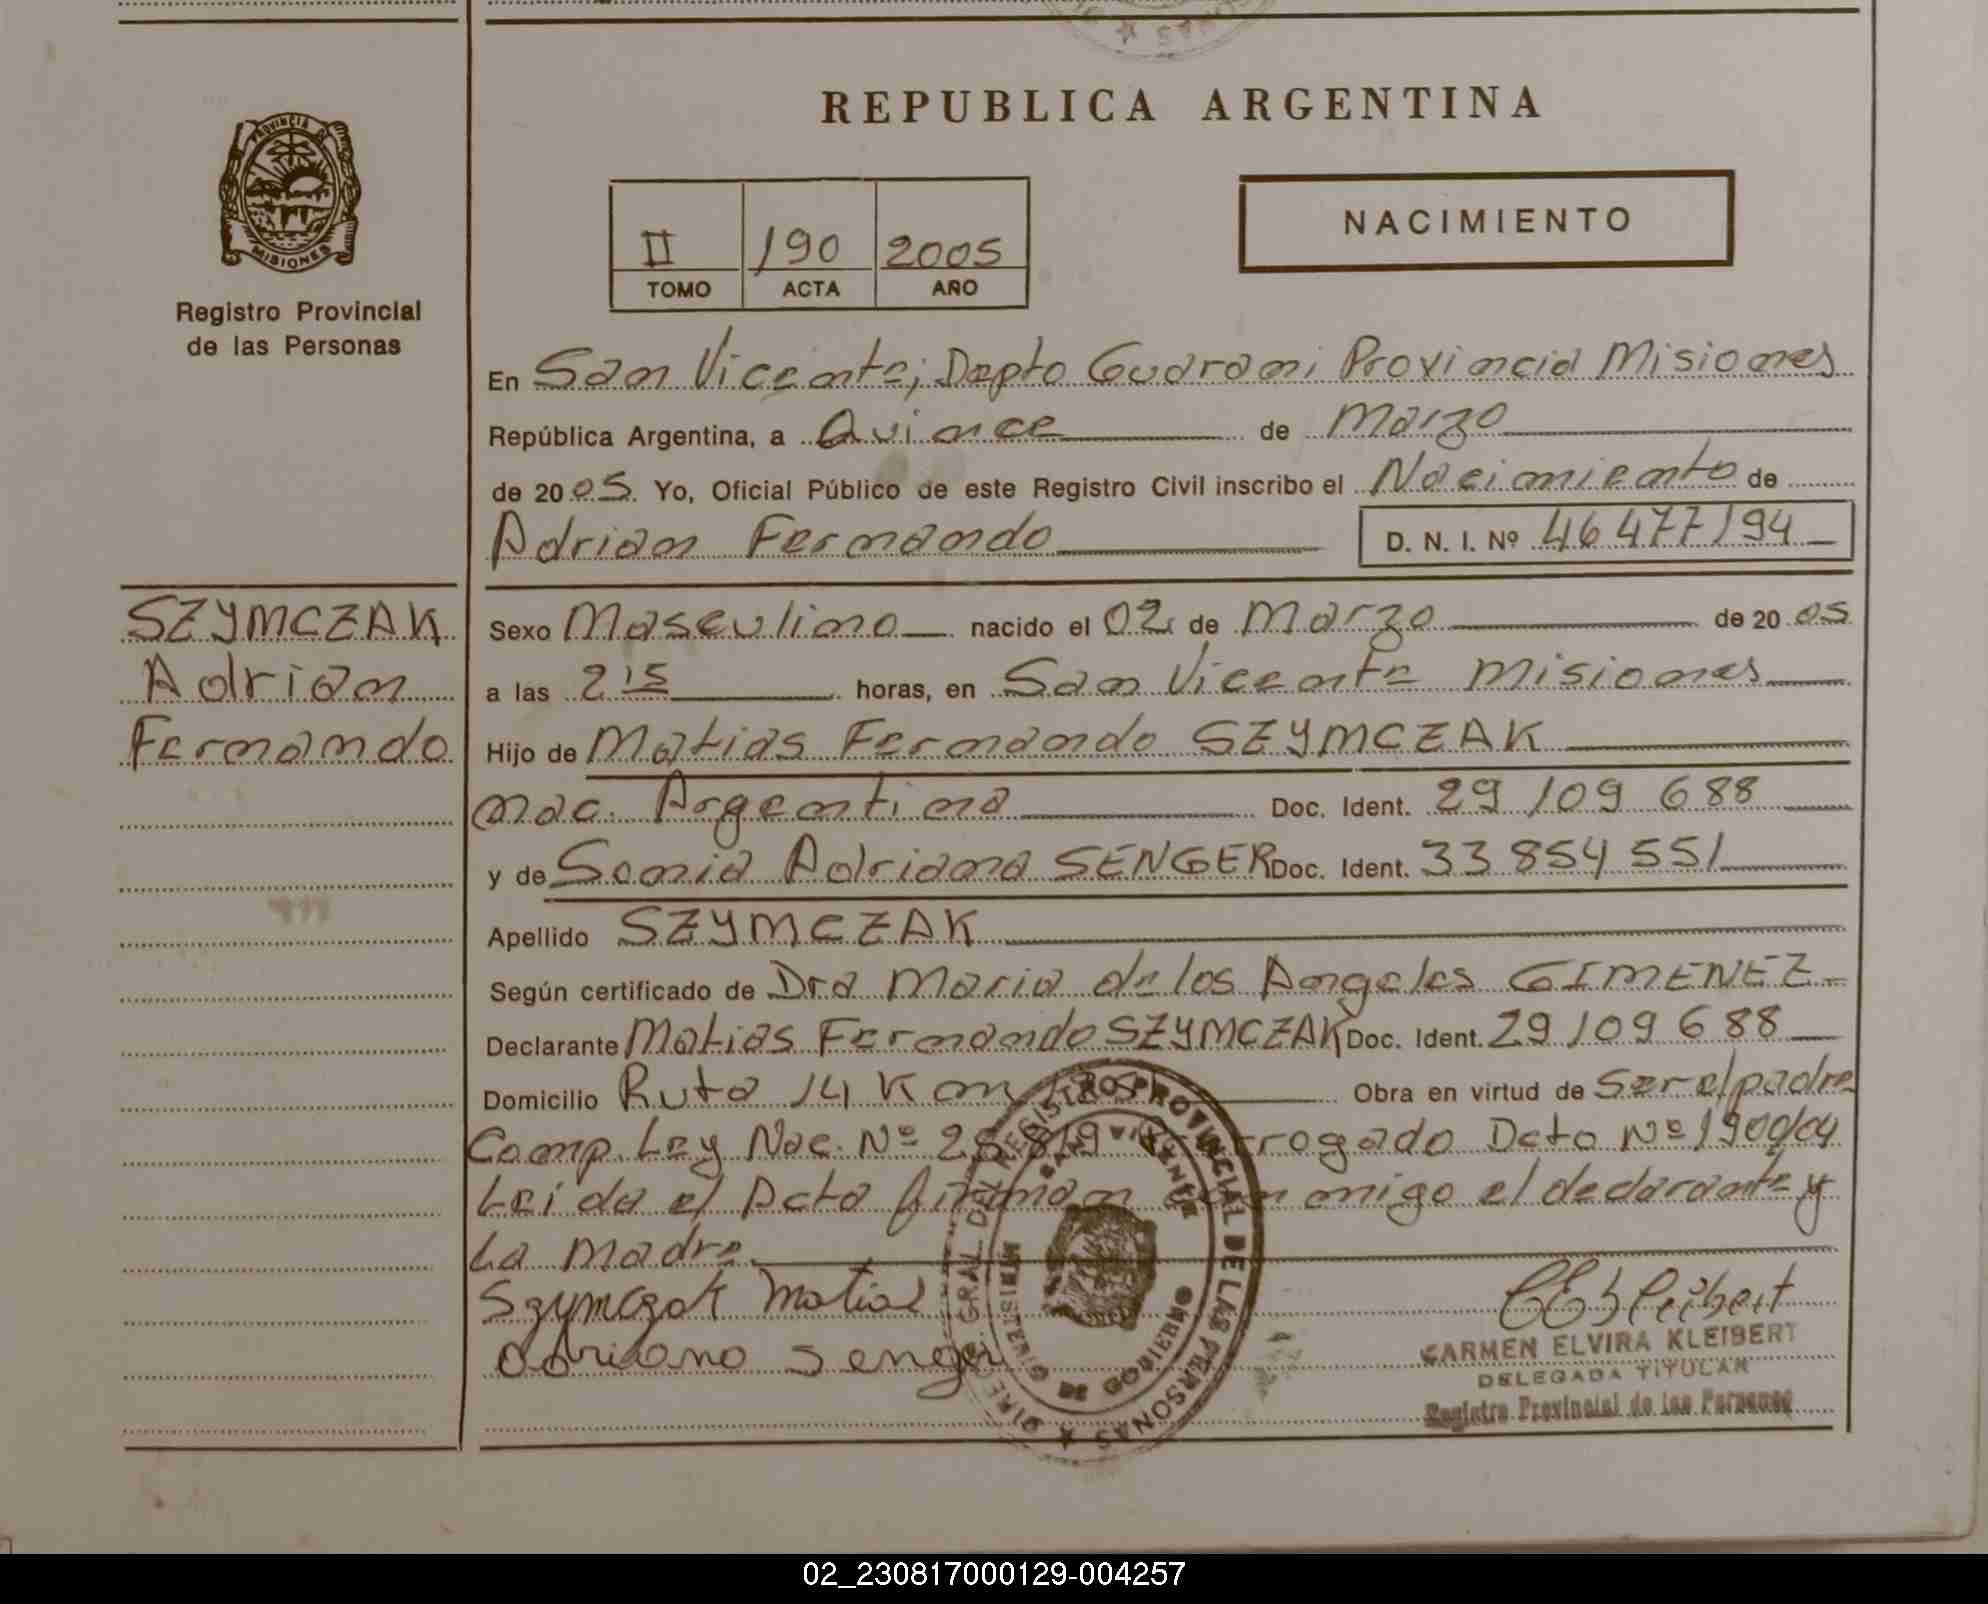 REPUBLICA ARGENTINA
PROVINCIA DE
MISIONES
Registro Provincial
de las Personas
II 190 2005
TOMO ACTA AÑO
NACIMIENTO
En San Vicente; Depto Guarani Provincia Misiones
República Argentina, a Quince de Marzo
de 2005. Yo, Oficial Público de este Registro Civil inscribo el Nacimiento de
Adrian Fernando D. N. I. Nº 46 477 194
SZYMCZAK
Adrian
Fernando
Sexo Masculino nacido el 02 de Marzo de 2005
a las 2 15 horas, en San Vicente Misiones
Hijo de Matias Fernando SZYMCZAK
nac. Argentina Doc. Ident. 29 109 688
y de Sonia Adriana SENGER Doc. Ident. 33 854 551
Apellido SZYMCZAK
Según certificado de Dra Maria de los Angeles GIMENEZ
Declarante Matias Fernando SZYMCZAK Doc. Ident. 29 109 688
Domicilio Ruta 14 Km Obra en virtud de Ser el padre
Comp. Ley Nac. Nº 25 819 Dcto Nº 1900/04
Leida el Acta firman conmigo el declarante y
La madre.
Szymczak Matias
Adriana Senger
CARMEN ELVIRA KLEIBERT
DELEGADA TITULAR
Registro Provincial de las Personas
DIREC. GRAL. DEL REGISTRO PROVINCIAL DE LAS PERSONAS
SAN VICENTE
MINISTERIO DE GOBIERNO
02_230817000129-004257